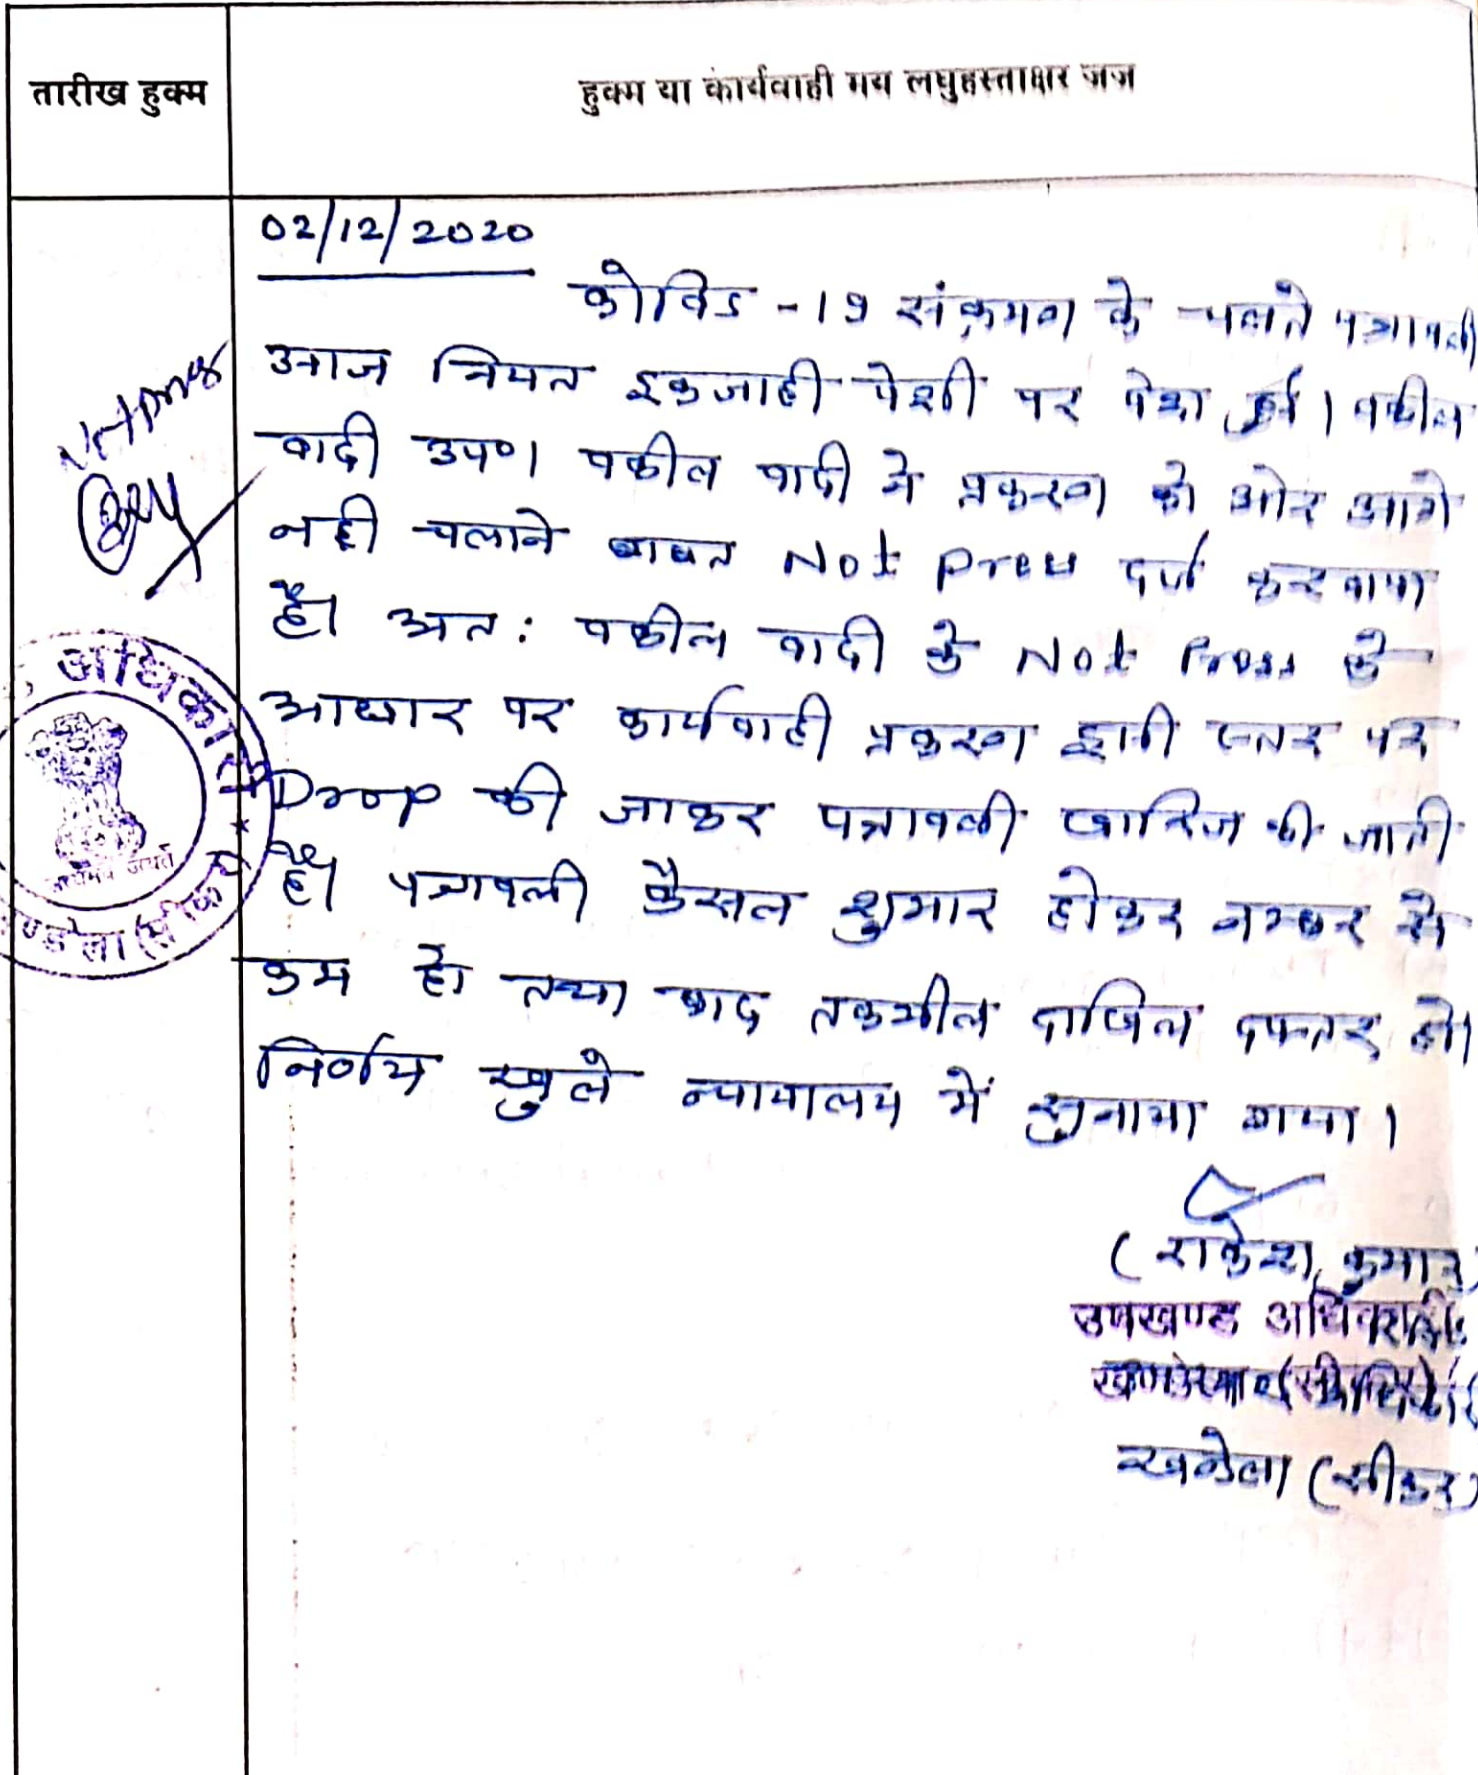 तारीख हुक्म
हुक्म या कार्यवाही मय लघुहस्ताक्षर जज
02/12/2020
कोविड -19 संक्रमण के चलते पत्रावली
आज नियत इकजाही पेशी पर पेश हुई। वकील
वादी उप०। वकील वादी ने प्रकरण को ओर आगे
नही चलाने बाबत Not Press दर्ज करवाया
है। अत: वकील वादी के Not Press के
आधार पर कार्यवाही प्रकरण इसी स्तर पर
Drop की जाकर पत्रावली खारिज की जाती
है। पत्रावली फैसल शुमार होकर नम्बर से
कम हो तथा बाद तकमील दाखिल दफ्तर हो।
निर्णय खुले न्यायालय में सुनाया गया।
Not press
अधिकारी
सत्यमेव जयते
खण्डेला (सीकर)
(राकेश कुमार)
उपखण्ड अधिकारी
खण्डेला (सीकर)